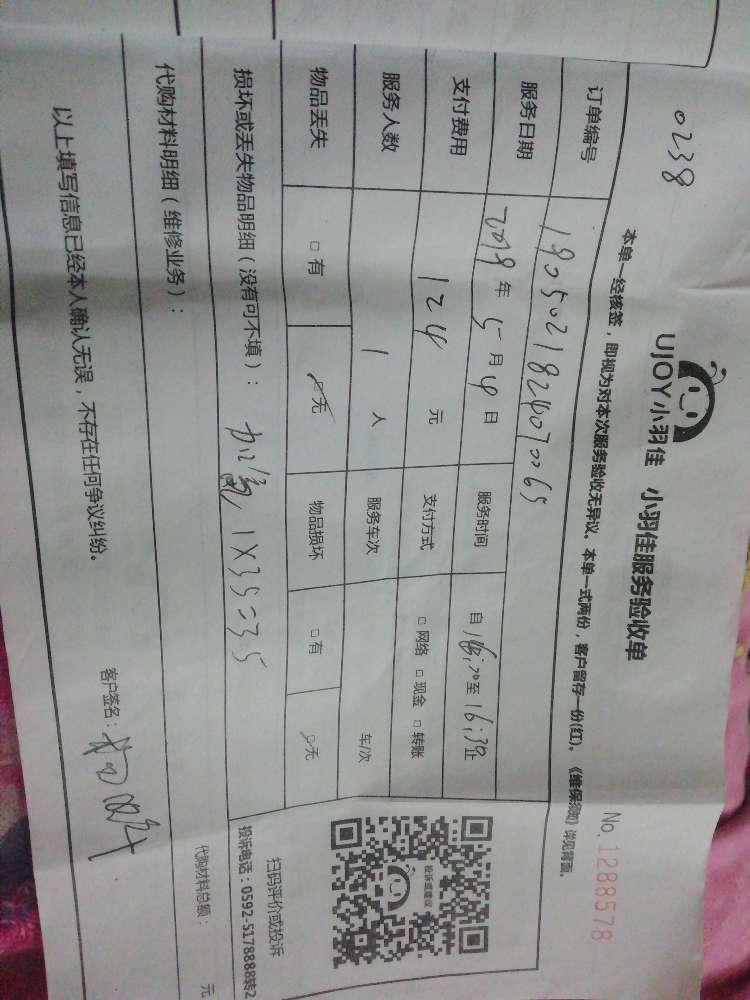 0238
UJOY小羽佳 小羽佳服务验收单
No. 1288578
本单一经核签，即视为对本次服务验收无异议。本单一式两份，客户留存一份(红)。《维保须知》详见背面。
订单编号 180502182407 0065
服务日期 2018年 5月 4日 服务时间 自 至 16:30止
支付费用 124 元 支付方式 □ 网络 □ 现金 □ 转账
服务人数 1 人 服务车次 车/次
物品丢失 □ 有 ☑无 物品损坏 □ 有 ☑无
损坏或丢失物品明细（没有可不填）：
加氟 1X35=35
代购材料明细（维修业务）：
代购材料总额： 元
投诉或建议
扫码评价或投诉
投诉电话：0592-5178888转2
以上填写信息已经本人确认无误，不存在任何争议纠纷。
客户签名：